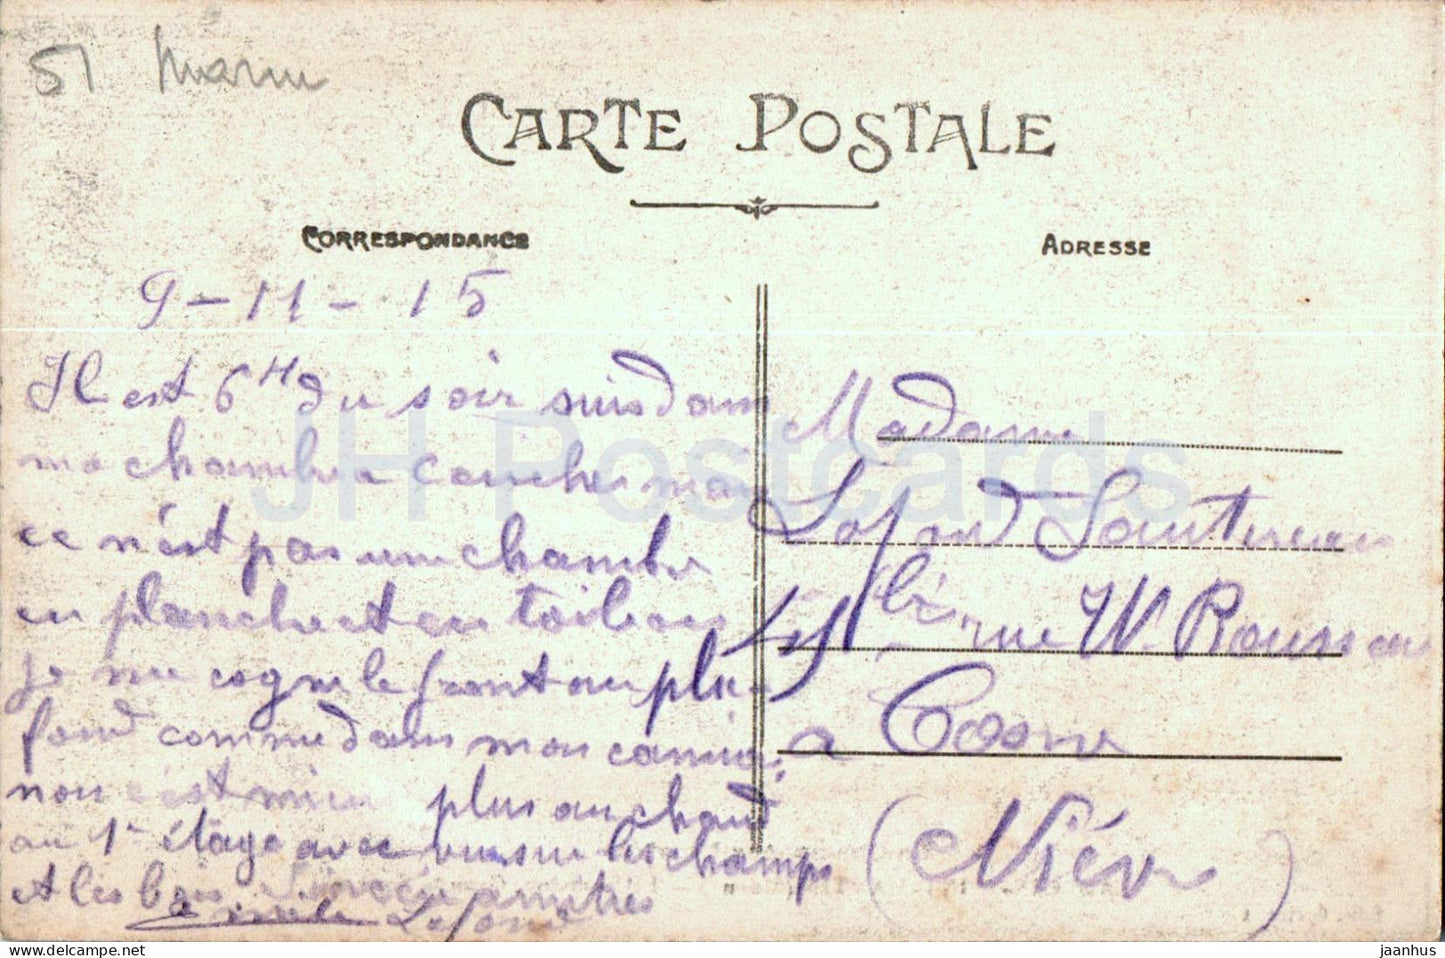 51 Marne
CARTE POSTALE
CORRESPONDANCE
ADRESSE
9-11-15
Il est 6H du soir suis dans
ma chambre couché mais
ce n'est pas une chambre
en planche et en toile ou
je me cogne le front au pla
fond comme dans mon camion
non c'est mieux plus au chaud
au 1er étage avec vue sur les champs
et les bois Sincères amitiés
Emile Lafond
Madame
Lafond Sautereau
rue W. Rousseau
a Cosne
(Nièvre)
JH Postcards
jaanhus